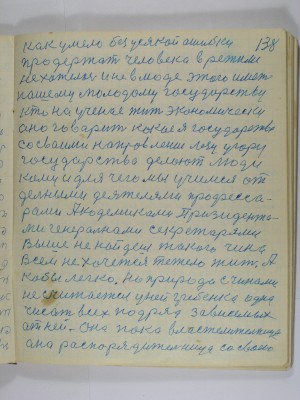 138
как умело без усякой ошибку
продержат человека в режими
нехателы и не в моде этого имет
нашему молодому государству
кто на ученае жит экономически
оно говарит какое я государство
со сваими направлении
государства делают люди
кому и для чего мы учимся от
дельными деятелями професса-
рами Академиками Призидента-
ми генералнами секретарями
Выше не найдеш такого чена
Всем не хочется тежело жит, А
кобы легко. Но природа с чинами
не считается у ней гребенка одна
чисать всех подряд зависемых
от ней. Она пока властелителница
она распорядителница со своею